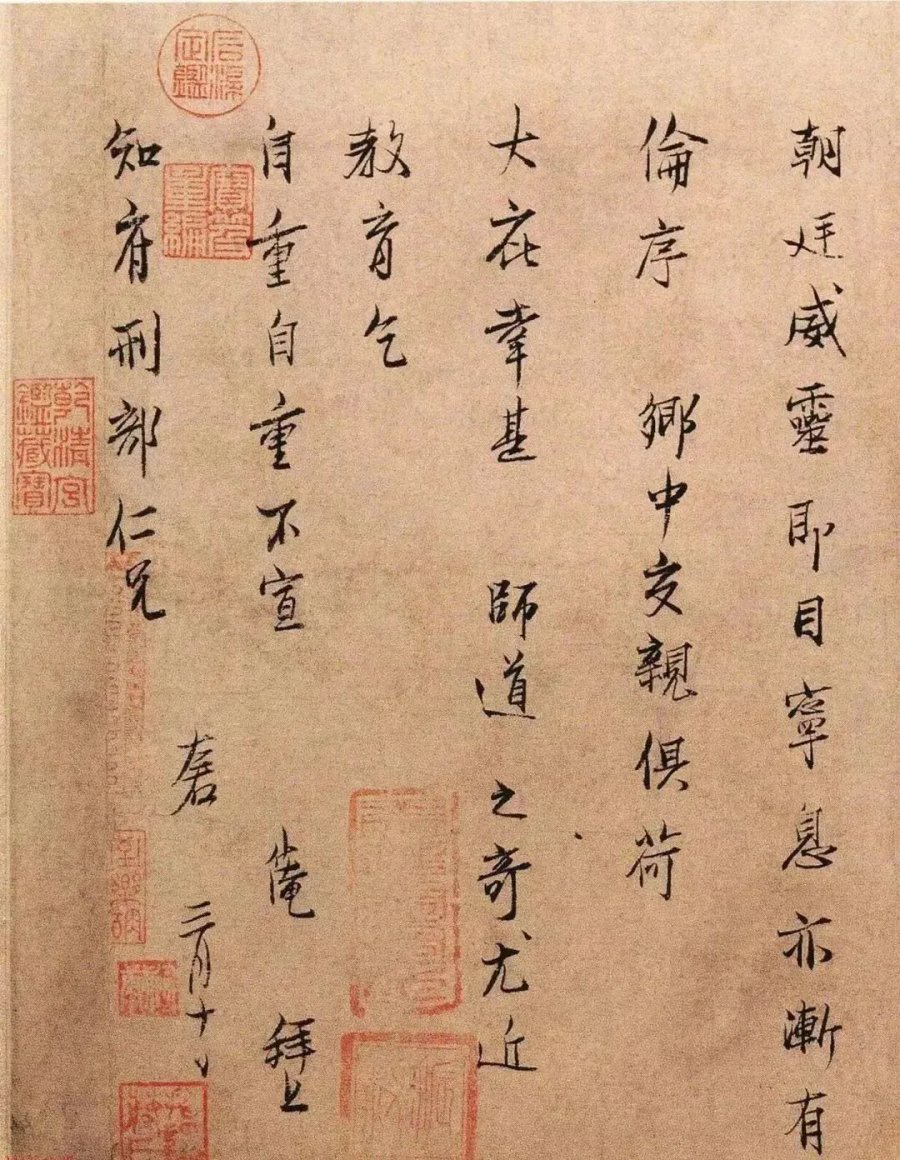 朝廷威靈即目寧息亦漸有
倫序 鄉中交親俱荷
大庇幸甚 師道之奇尤近
教育乞
自重自重不宣 庵 拜上
知府刑部仁兄
三月十
石渠定鑑
寶笈重編
乾清宮鑑藏寶